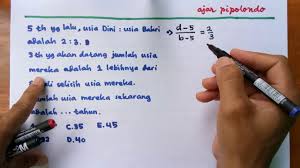 ajar pipolondo
5 th yg lalu, usia Dini : usia Bahri
adalah 2 : 3.
3 th yg akan datang jumlah usia
mereka adalah 1 lebihnya dari
kali selisih usia mereka.
jumlah usia mereka sekarang
adalah ... tahun.
C. 35 E. 45
D. 40
⇒ d-5 / b-5 = 2/3